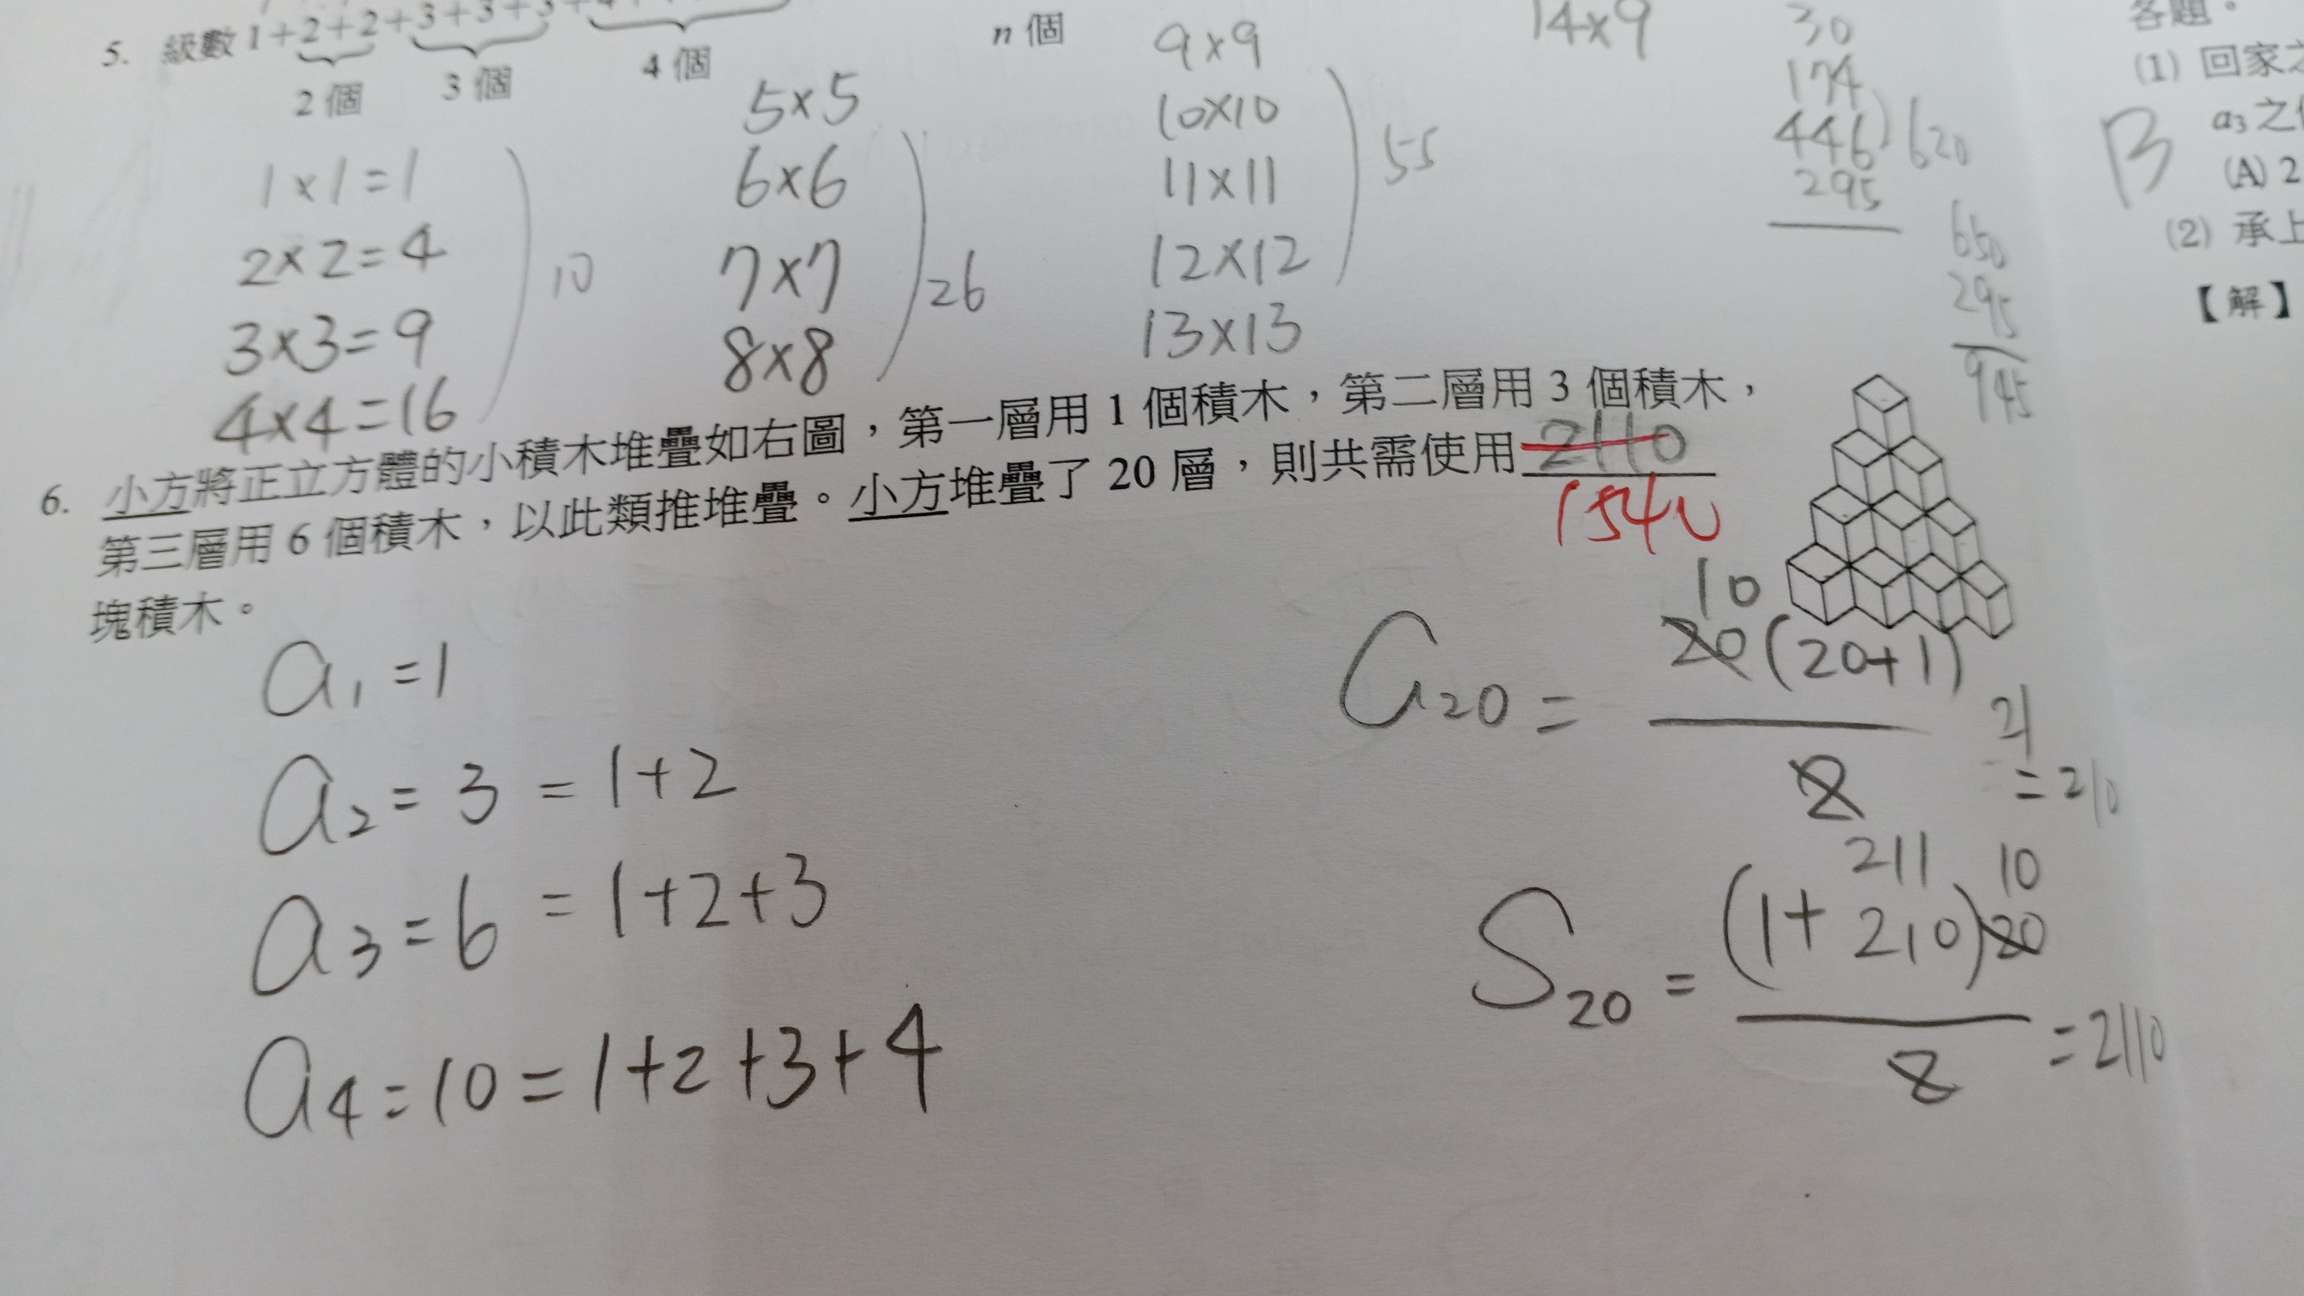 5. 級數 1+2+2+3+3+3+
2 個 3 個 4 個 n 個
1×1=1
2×2=4
3×3=9
4×4=16
10
5×5
6×6
7×7
8×8
26
9×9
10×10
11×11
12×12
13×13
55
14×9
30
174
446
295
620
650
295
945
6. 小方將正立方體的小積木堆疊如右圖，第一層用 1 個積木，第二層用 3 個積木，
第三層用 6 個積木，以此類推堆疊。小方堆疊了 20 層，則共需使用 2110
1540
塊積木。
a₁=1
a₂=3=1+2
a₃=6=1+2+3
a₄=10=1+2+3+4
10
a₂₀= 20(20+1)
2
21
=210
211 10
S₂₀= (1+210)20
2
=2110
各題。
(1) 回家之
B
a₃之
(A) 2
(2) 承上
【解】